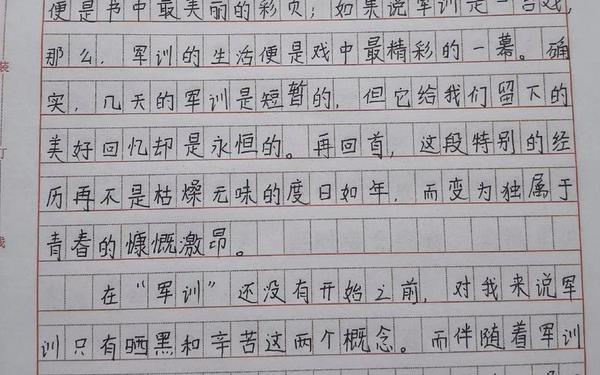 便是书中最美丽的彩页；如果说军训是一台戏，
那么，军训的生活便是戏中最精彩的一幕。确
实，几天的军训是短暂的，但它给我们留下的
美好回忆却是永恒的。再回首，这段特别的经
历再不是枯燥无味的度日如年，而变为独属于
青春的慷慨激昂。
在“军训”还没有开始之前，对我来说军
训只有晒黑和辛苦这两个概念。而伴随着军训
装
订
线